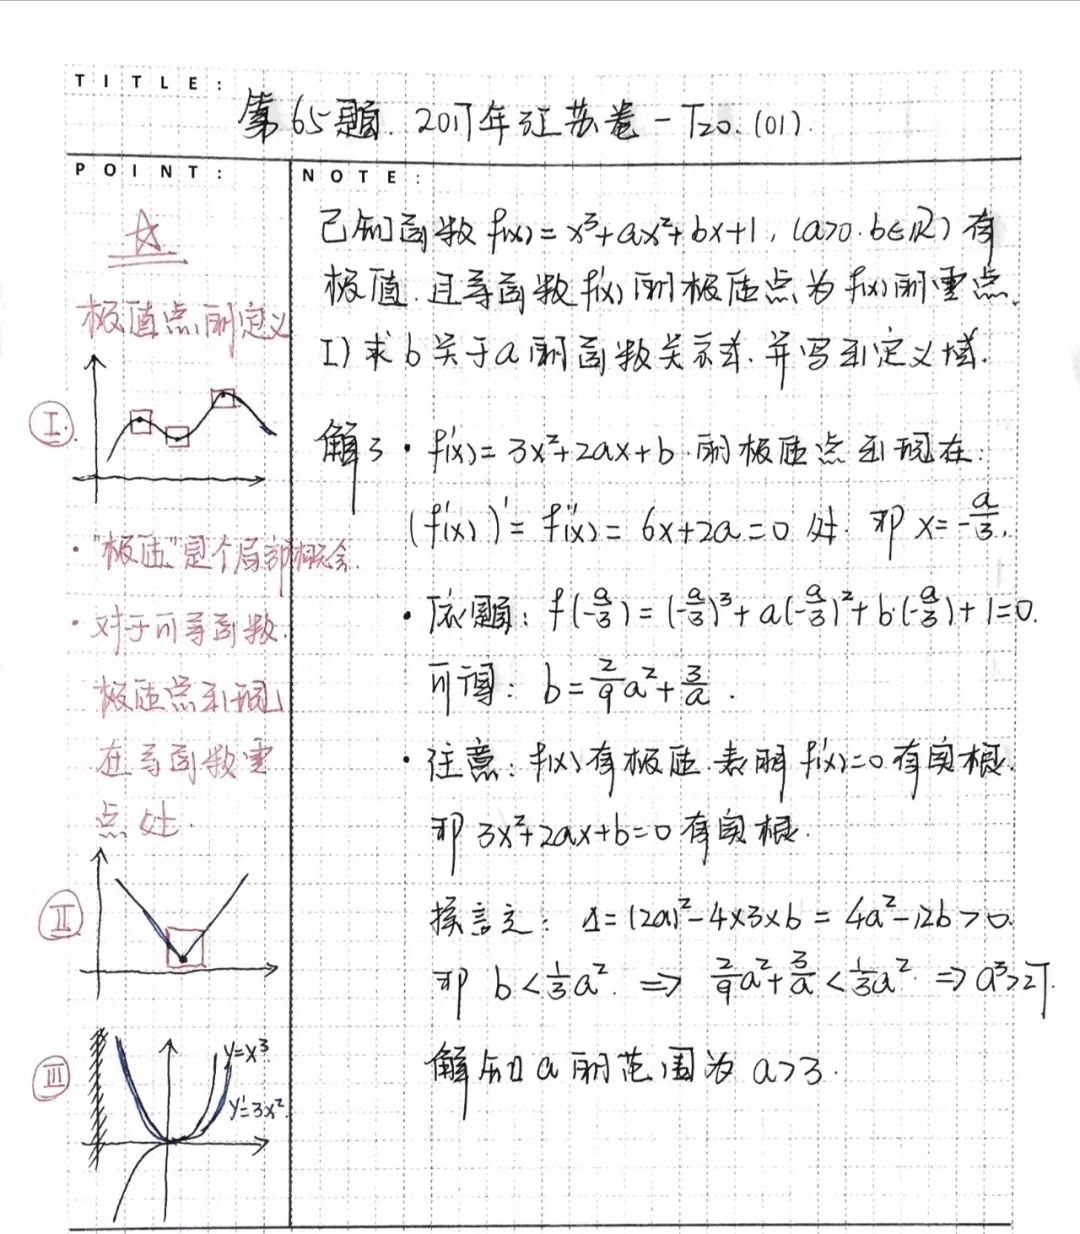 TITLE:
第65题. 2017年江苏卷-T20.(01).
POINT:
☆
极值点的定义
I.
·"极值"是个局部概念.
·对于可导函数.
极值点出现
在导函数零
点处.
II
III
y=x³
y'=3x²
NOTE:
已知函数 f(x)=x³+ax²+bx+1, (a>0.b∈R) 有
极值.且导函数f'(x)的极值点为f(x)的零点.
I) 求b关于a的函数关系式.并写出定义域.
解: · f'(x)=3x²+2ax+b.的极值点出现在:
(f'(x))'=f''(x)=6x+2a=0 处. 即 x=-a/3.
· 依题: f(-a/3)=(-a/3)³+a(-a/3)²+b·(-a/3)+1=0.
可得: b=2/9a²+3/a.
· 注意: f(x)有极值.表明 f'(x)=0有实根.
即 3x²+2ax+b=0有实根.
换言之: Δ=(2a)²-4×3×b=4a²-12b>0.
即 b<1/3a². ⇒ 2/9a²+3/a<1/3a². ⇒ a³>27.
解知a的范围为 a>3.